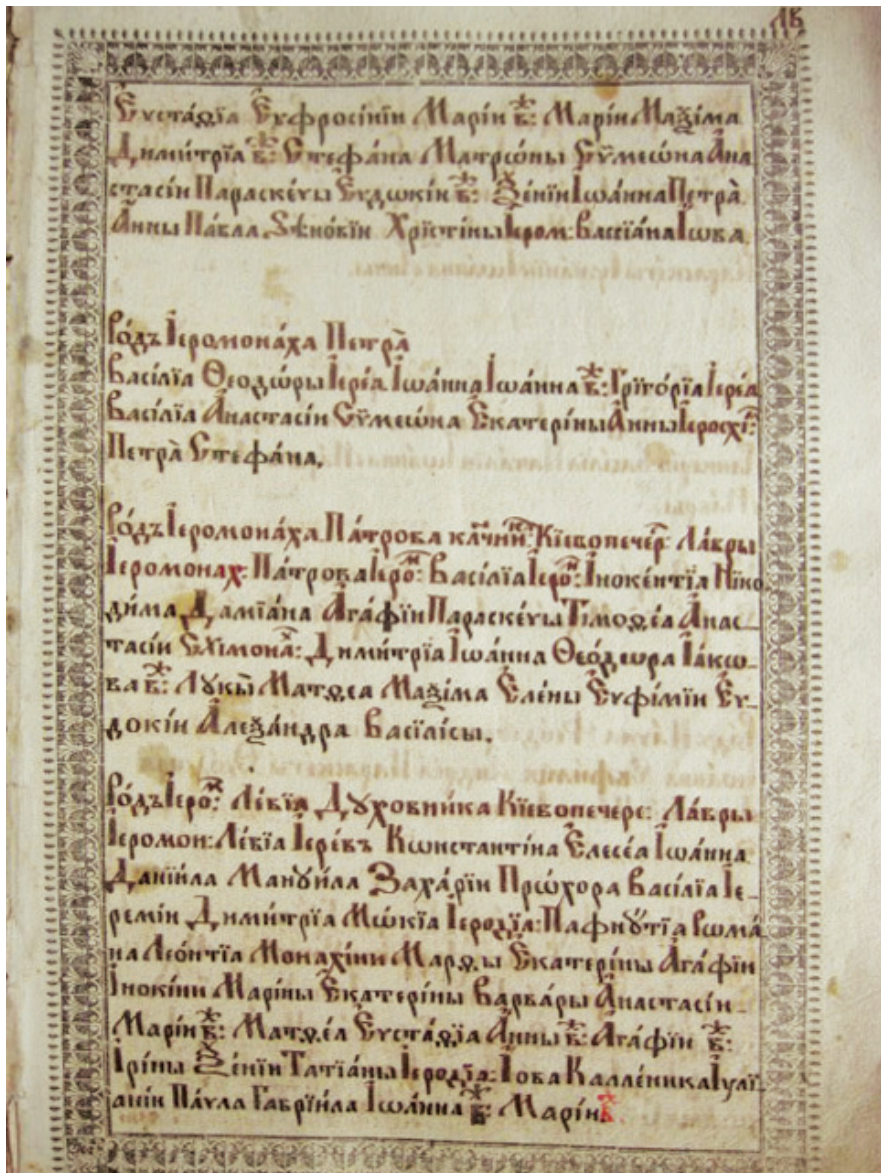 лв
Єѵста́ѳїа Єѵфросі́нїи Марі́и в҃: Марі́и Маѯі́ма
Дими́трїа в҃: Стефа́на Матрѡ́ны Сѷмеѡ́на А́на
стасі́и Параскеѵы Єѵдокі́и в҃: Ѯе́нїи Іѡа́нна Петра̀
А́нны Па́вла Ѕѣно́вїи Хрїсті́ны Іером: Вассїа́на І́ѡва
Ро́дъ Іеромона́ха Петра̀
Васі́лїа Ѳеодѡ́ры Іере́а Іѡа́нна Іѡа́нна в҃: Грїго́рїа Іере́а
Васі́лїа А́настасі́и Сѷмеѡ́на Єкатері́ны А́нны Іеросхїм:
Петра̀ Стефа́на,
Ро́дъ Іеромона́ха Па́трова Кїевопечер: Ла́вры
Іеромонах: Па́трова Іером: Васі́лїа Іером: І́нокентїа Нико
ди́ма Дамїа́на Ага́фїи Параскеѵы Тімоѳеа А́нас
тасі́и Схімона: Дими́трїа Іѡа́нна Ѳео́дѡра Іа́кѡ
ва в҃: Лꙋкы̀ Матѳеа Маѯі́ма Єле́ны Єѵфі́мїи Єѵ
докі́и Алеѯа́ндра Васілі́сы.
Ро́дъ Іером: Ле́вїа Дꙋхо́вника Кїевопечерс: Ла́вры
Іеромон: Ле́вїа Іере́въ Кѡнстанті́на Єлесе́а Іѡа́нна
Данїи́ла Манꙋи́ла Заха́рїи Про́хора Васі́лїа Іе
ремі́и Дими́трїа Мѡ́кїа Іеродїа: Пафнꙋ́тїа Рѡма́
на Лео́нтїа Монахі́ни Марѳы Єкатері́ны Ага́фїи
І́нокіни Марі́ны Єкатері́ны Варва́ры А́настасі́и
Марі́и в҃: Матѳе́а Єѵста́ѳїа А́нны в҃: Ага́фїи в҃:
Ірі́ны Ѯе́нїи Татїа́ны Іеродїа: І́ова Калле́ника Іꙋлї
анїи Па́ѵла Гаврїи́ла Іѡа́нна в҃: Марі́и в҃